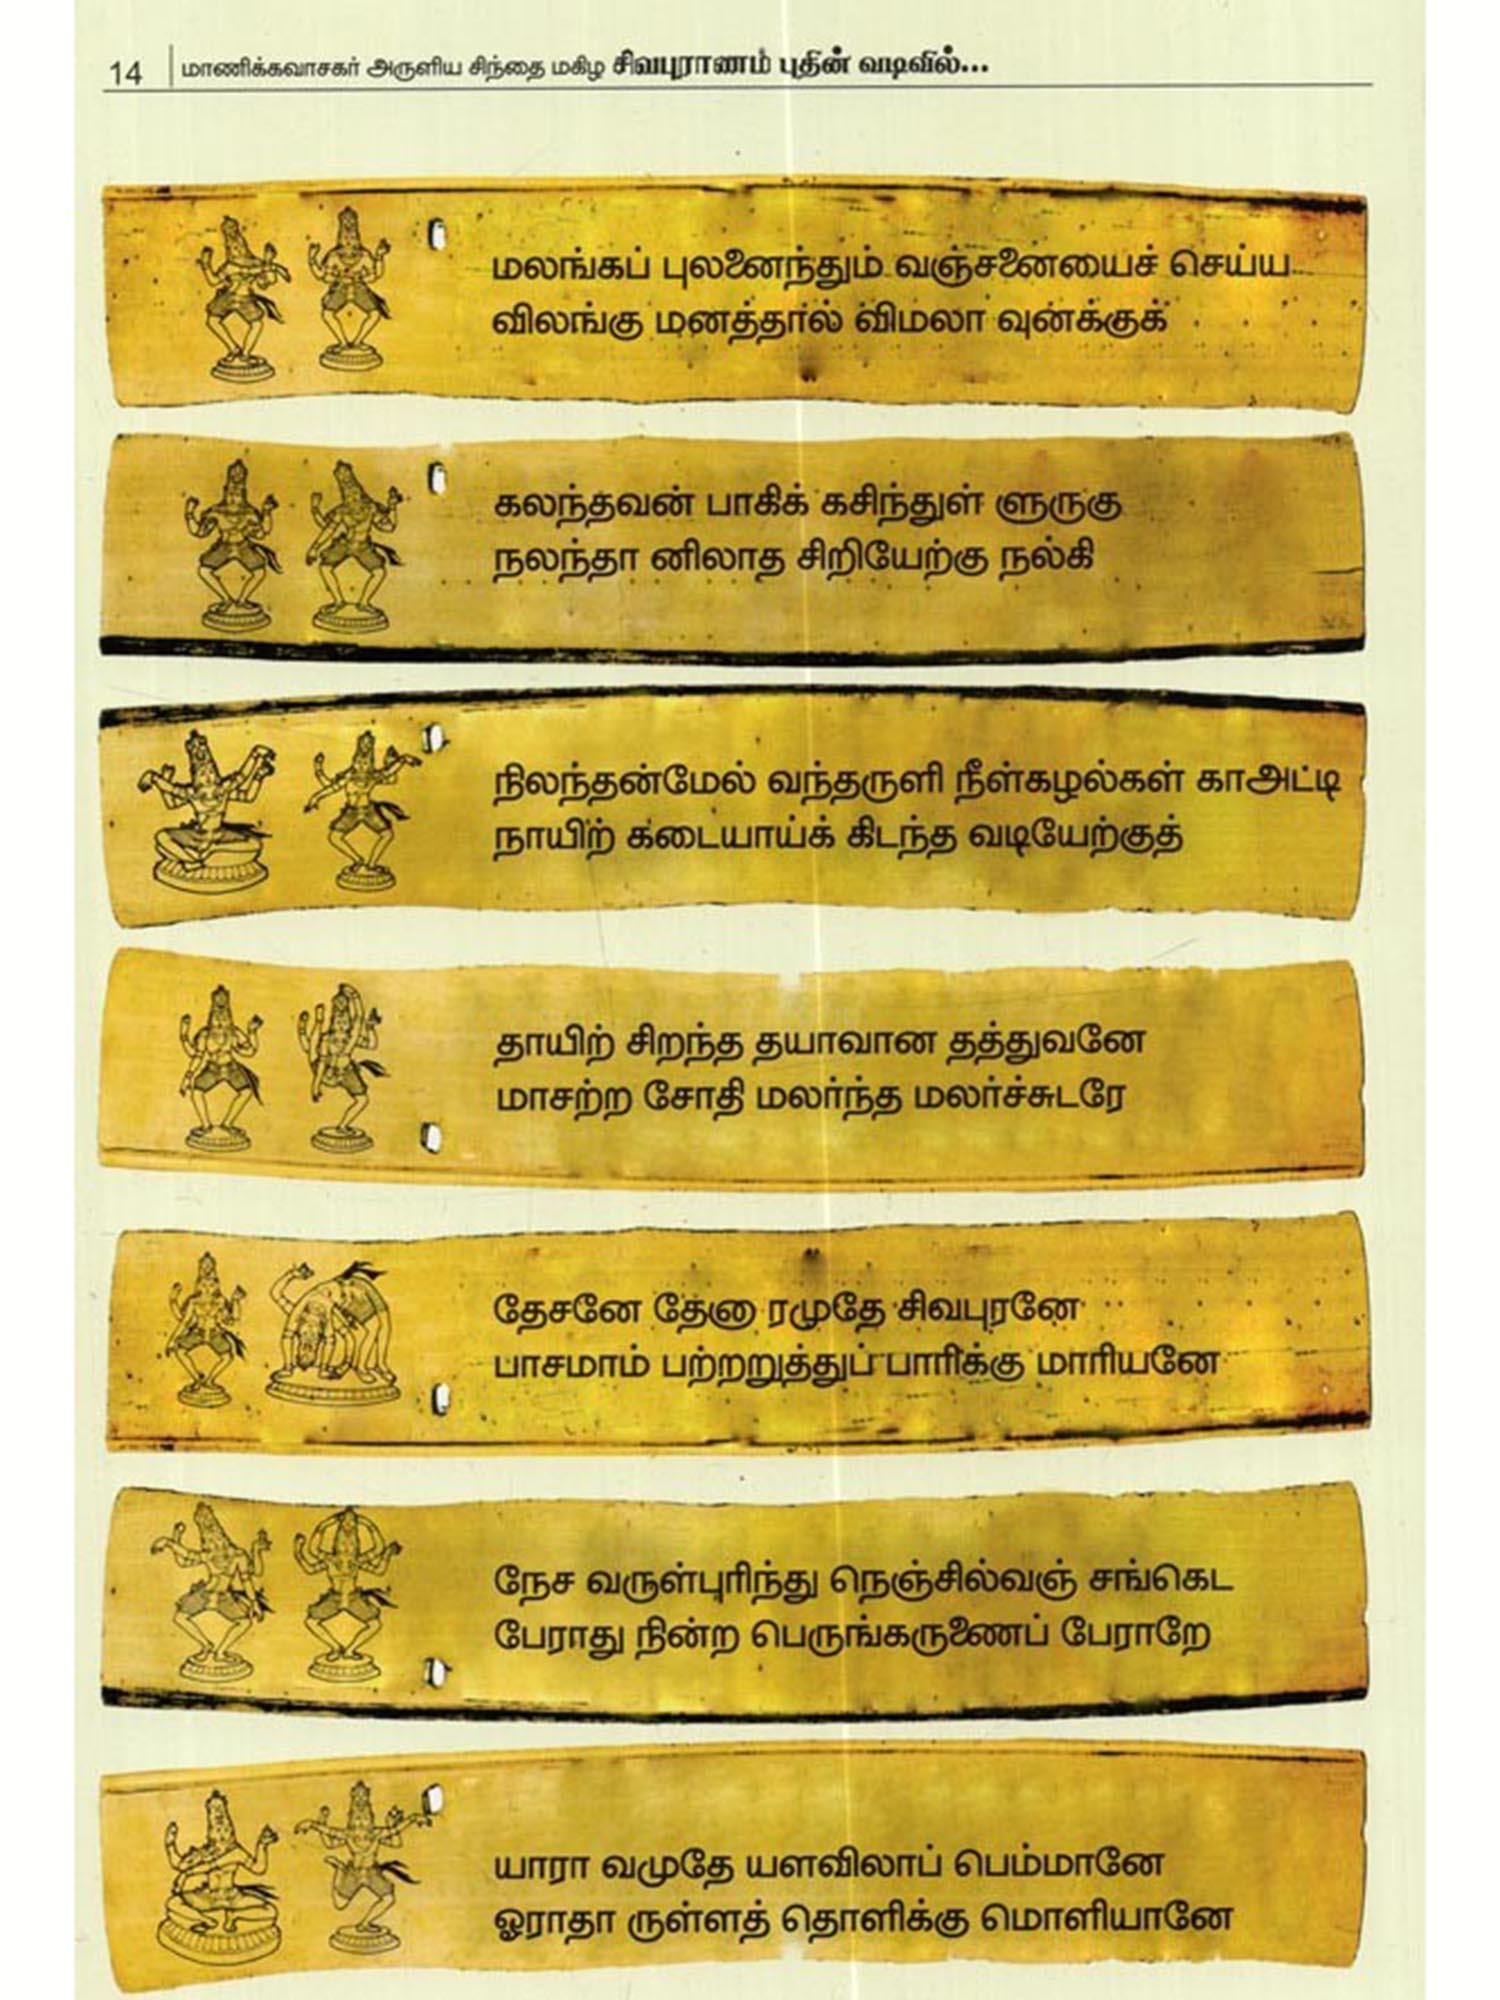 14 மாணிக்கவாசகர் அருளிய சிந்தை மகிழ சிவபுராணம் புதின் வடிவில்...
மலங்கப் புலனைந்தும் வஞ்சனையைச் செய்ய
விலங்கு மனத்தால் விமலா வுனக்குக்
கலந்தவன் பாகிக் கசிந்துள் ளுருகு
நலந்தா னிலாத சிறியேற்கு நல்கி
நிலந்தன்மேல் வந்தருளி நீள்கழல்கள் காஅட்டி
நாயிற் கடையாய்க் கிடந்த வடியேற்குத்
தாயிற் சிறந்த தயாவான தத்துவனே
மாசற்ற சோதி மலர்ந்த மலர்ச்சுடரே
தேசனே தேனா ரமுதே சிவபுரனே
பாசமாம் பற்றறுத்துப் பாரிக்கு மாரியனே
நேச வருள்புரிந்து நெஞ்சில்வஞ் சங்கெட
பேராது நின்ற பெருங்கருணைப் பேராறே
யாரா வமுதே யளவிலாப் பெம்மானே
ஓராதா ருள்ளத் தொளிக்கு மொளியானே